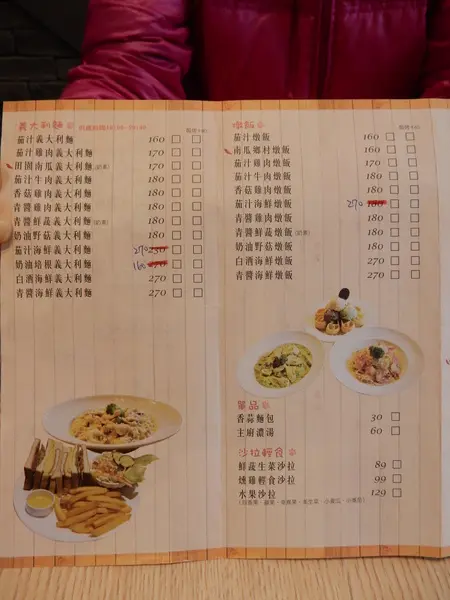 義大利麵
茄汁義大利麵 160
茄汁雞肉義大利麵 170
田園南瓜義大利麵(奶素) 170
茄汁牛肉義大利麵 180
香菇雞肉義大利麵 180
青醬雞肉義大利麵 180
青醬鮮蔬義大利麵(奶素) 180
奶油野菇義大利麵 180
茄汁海鮮義大利麵 270
奶油培根義大利麵 160
白酒海鮮義大利麵 270
青醬海鮮義大利麵 270
燉飯
茄汁燉飯 160
南瓜鄉村燉飯 160
茄汁雞肉燉飯 170
茄汁牛肉燉飯 180
香菇雞肉燉飯 180
茄汁海鮮燉飯 270
青醬雞肉燉飯 180
青醬鮮蔬燉飯(奶素) 180
奶油野菇燉飯 180
白酒海鮮燉飯 270
青醬海鮮燉飯 270
單品
香蒜麵包 30
主廚濃湯 60
沙拉輕食
鮮蔬生菜沙拉 89
燻雞輕食沙拉 99
水果沙拉 129